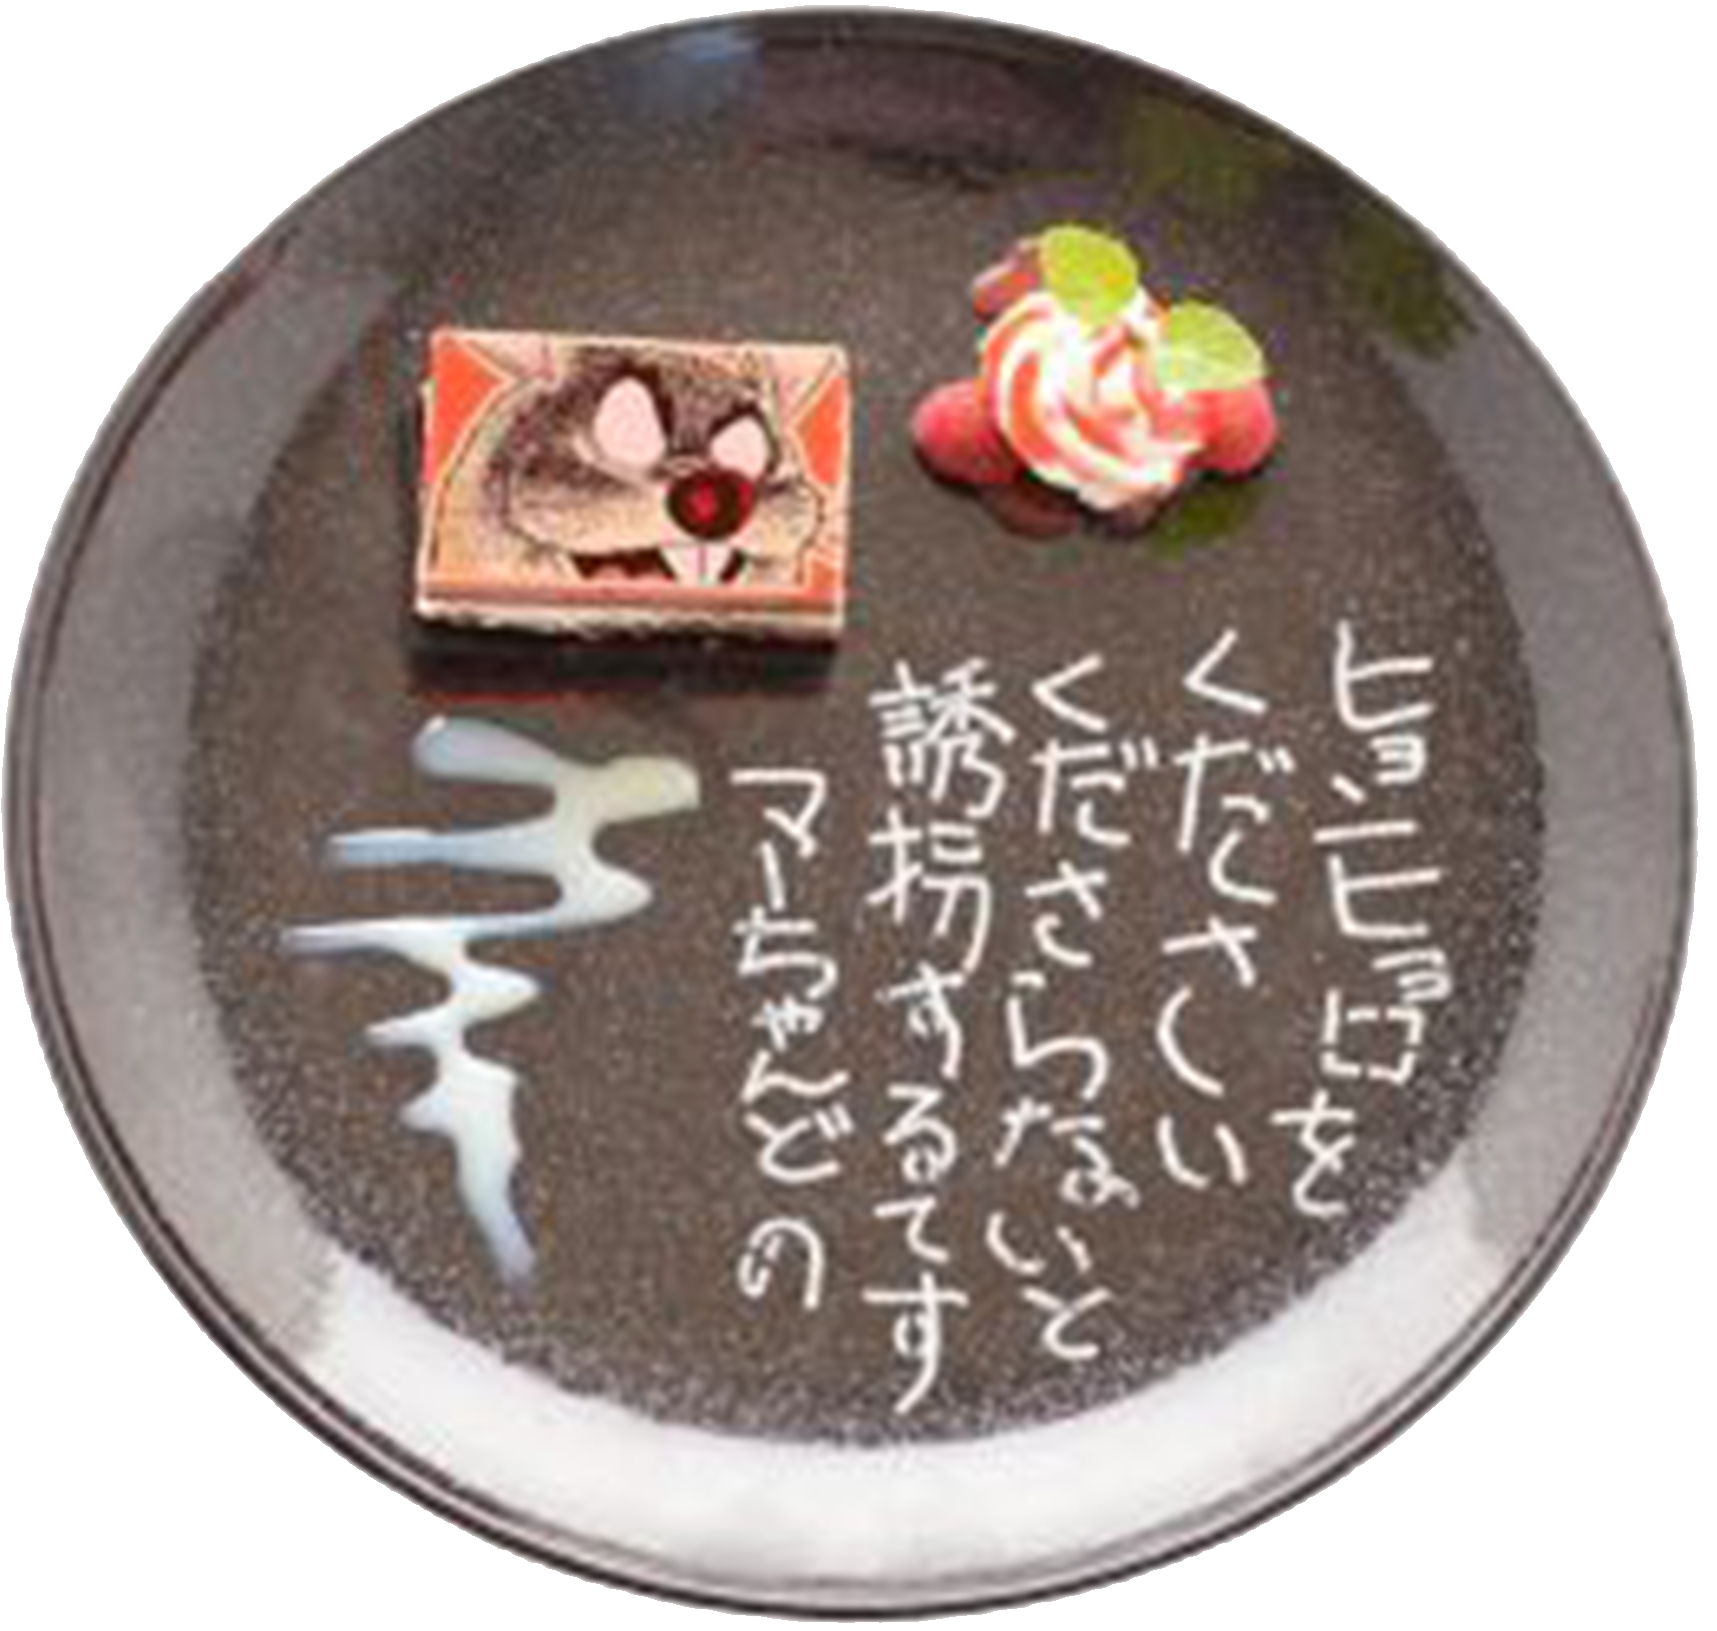 ヒョンヒョロを
ください
くださらないと
誘拐するてす
マーちゃんどの